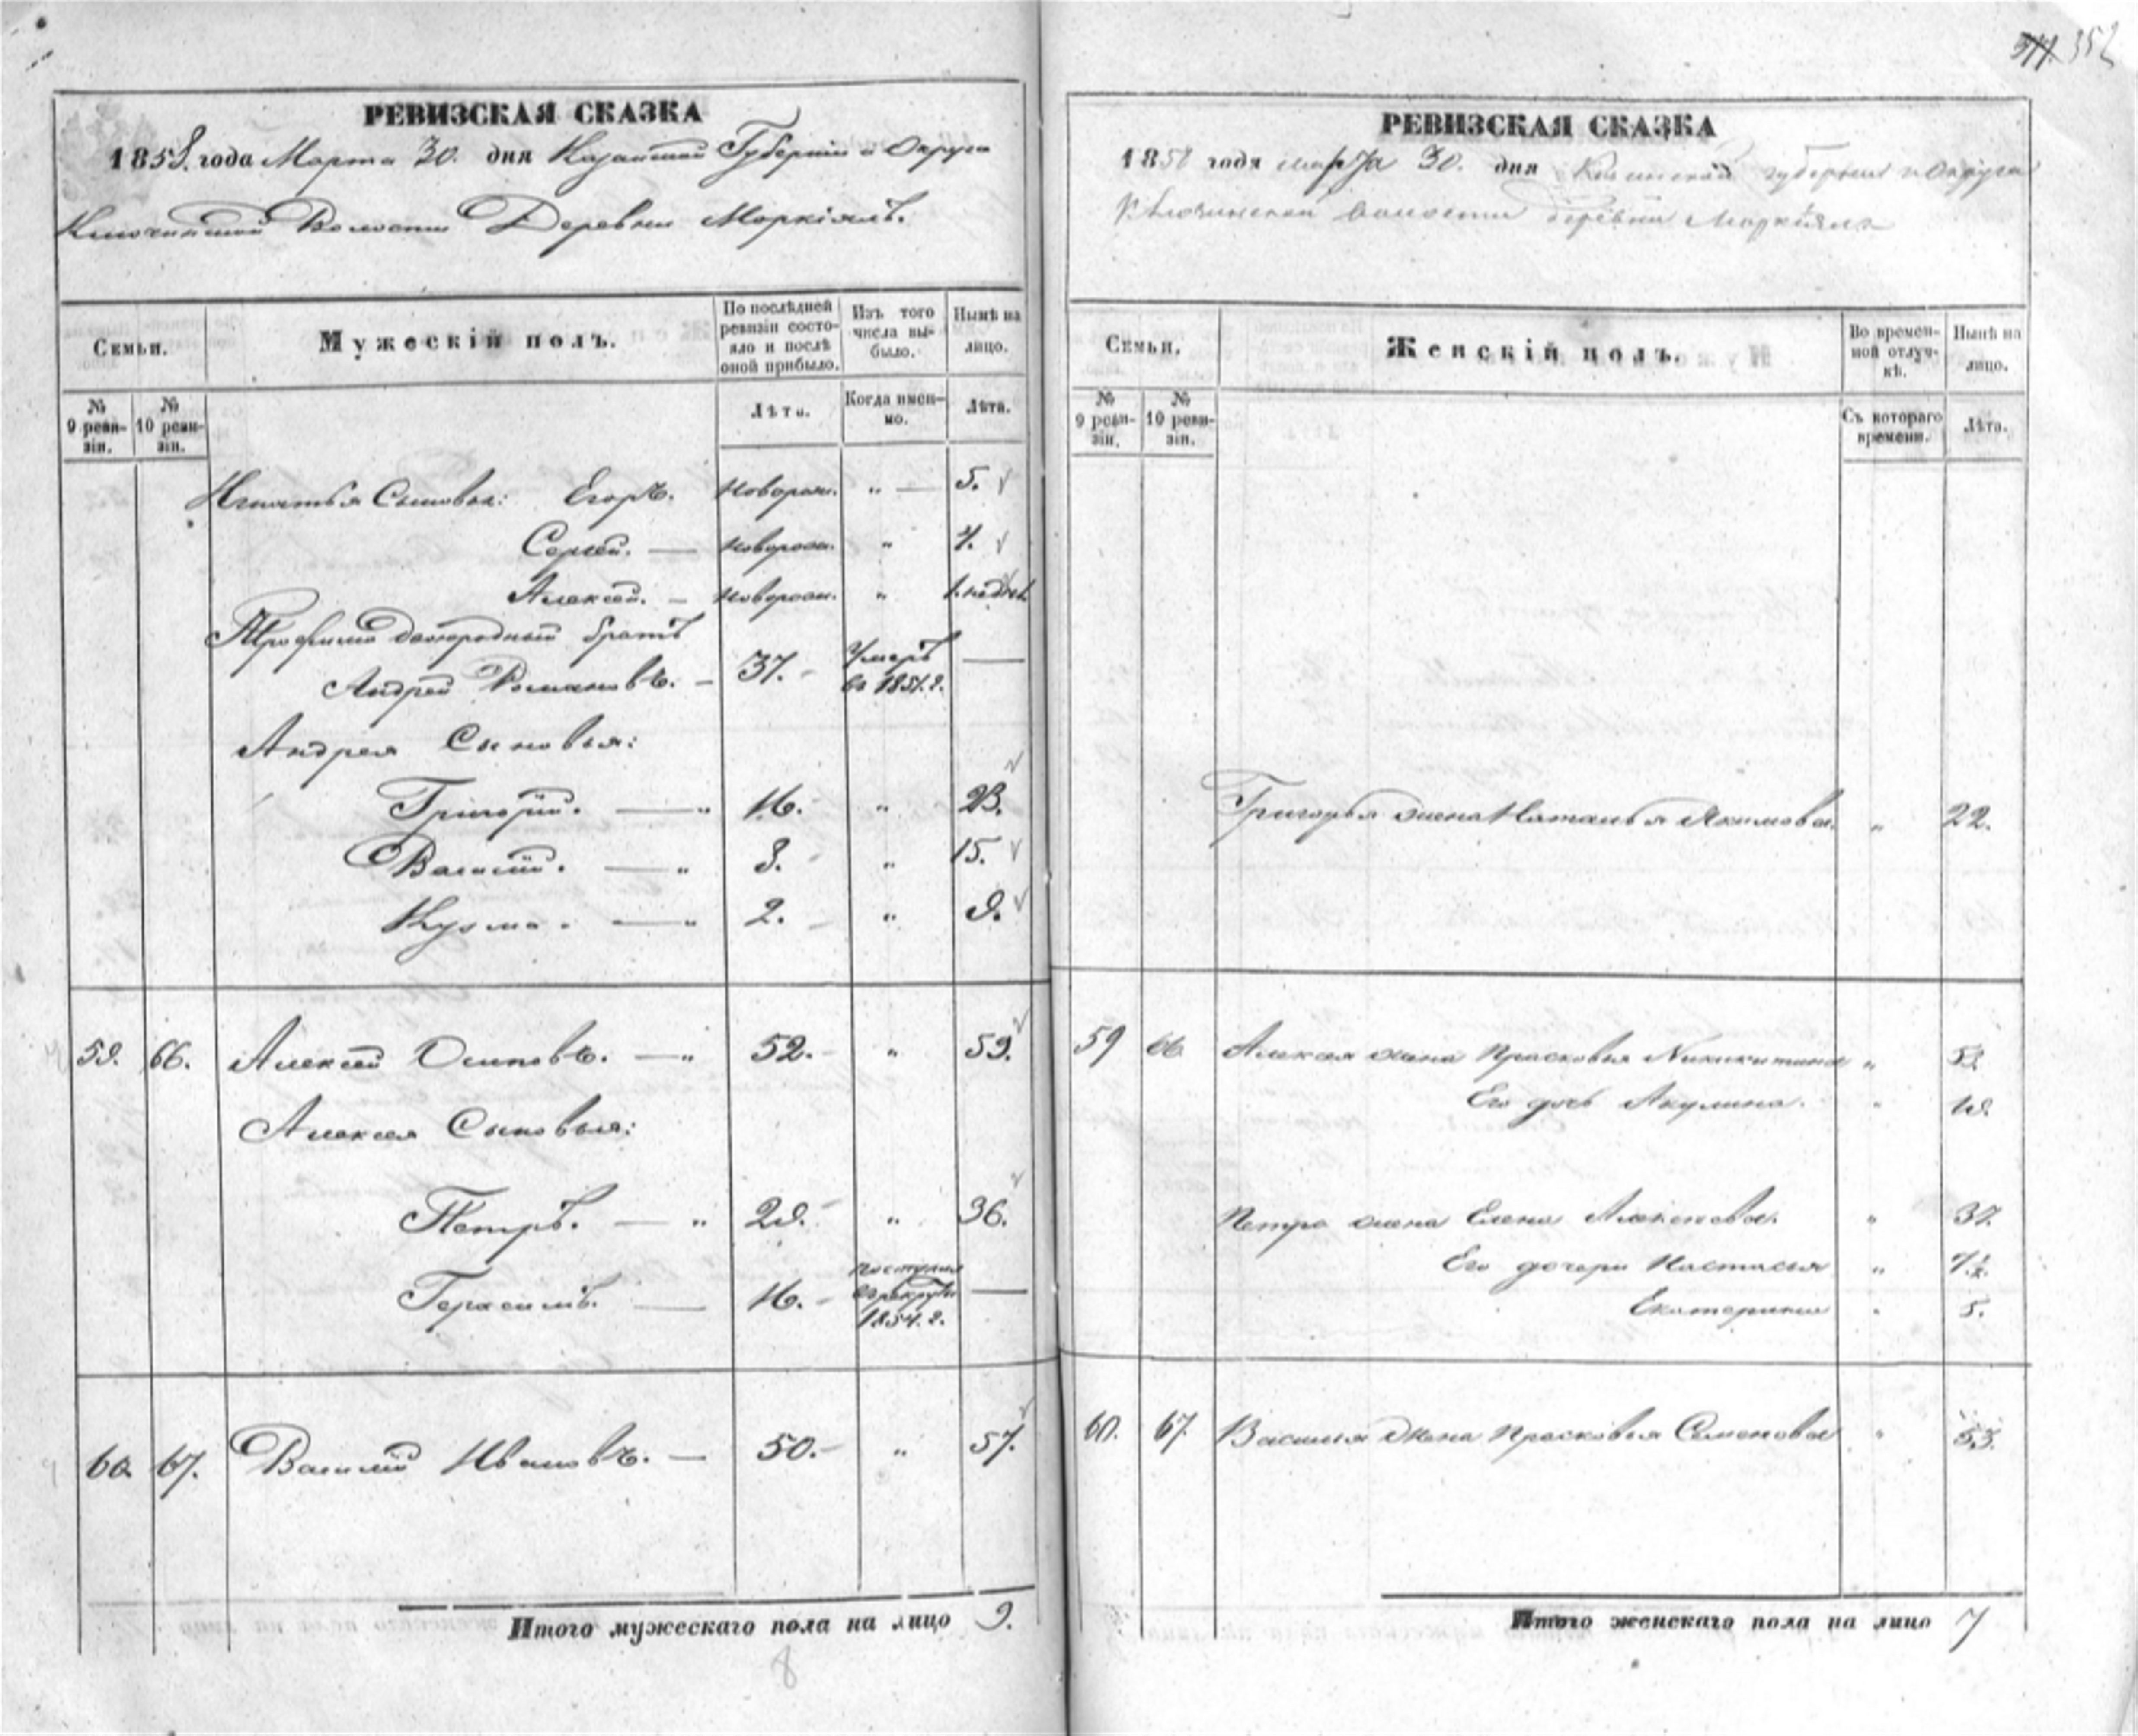 352
РЕВИЗСКАЯ СКАЗКА
1858. года Марта 30. дня Казанской Губерніи и Округа
Ключинской Волости Деревни Маркіялъ.
Семьи.
Мужескій полъ.
По послѣдней ревизіи состояло и послѣ оной прибыло.
Изъ того числа выбыло.
Нынѣ на лицо.
№ 9 ревизіи.
№ 10 ревизіи.
Лѣта.
Когда именно.
Лѣта.
Игнатья Сыновья: Егоръ. новорож. " — 5.
Сергей. — новорож. " 4.
Алексей. — новорож. " 1. недѣл.
Трофима двоюродный братъ
Андрей Романовъ. — 37. умеръ въ 1851. г. —
Андрея Сыновья:
Григорій. — " 16. " 23.
Василій. — " 8. " 15.
Кузма. — " 2. " 9.
59. 66. Алексей Осиповъ. — " 52. " 59.
Алексея Сыновья:
Петръ. — " 29. " 36.
Герасимъ. — 16. поступил въ рекруты 1854. г. —
60. 67. Василій Ивановъ. — 50. " 57.
Итого мужескаго пола на лицо 9.
8
РЕВИЗСКАЯ СКАЗКА
1858 года марта 30. дня Казанской губерніи и Округа
Ключинской волости деревни Маркіялъ
Семьи.
Женскій полъ.
Во временной отлучкѣ.
Нынѣ на лицо.
№ 9 ревизіи.
№ 10 ревизіи.
Съ котораго времени.
Лѣта.
Григорья жена Наталья Якимова. " 22.
59 66 Алексея жена Прасковья Никикитина "
Его дочь Акулина. " 19.
Петра жена Елена Алексеева. " 37.
Его дочери Настасья "
Екатерина " 5.
60. 67. Василья Жена Прасковья Семенова " 53.
Итого женскаго пола на лицо 7